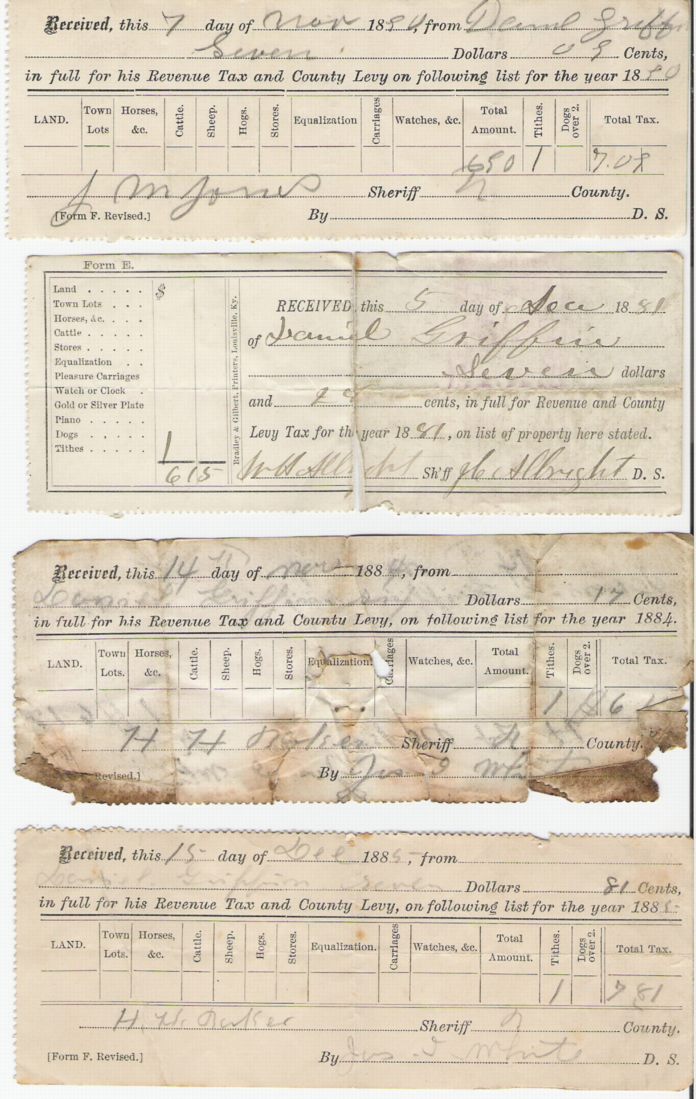 Received, this 7 day of Nov 18 , from Daniel Griffin
Seven Dollars 09 Cents,
in full for his Revenue Tax and County Levy on following list for the year 1880
LAND. Town Lots Horses, &c. Cattle. Sheep. Hogs. Stores. Equalization Carriages Watches, &c. Total Amount. Tithes. Dogs over 2. Total Tax.
1 7.09
J M Jones Sheriff County.
[Form F. Revised.] By D. S.
Form E.
Land $
Town Lots
Horses, &c.
Cattle
Stores
Equalization
Pleasure Carriages
Watch or Clock
Gold or Silver Plate
Piano
Dogs
Tithes 1
615
Bradley & Gilbert, Printers, Louisville, Ky.
RECEIVED this 5 day of 1881
of Daniel Griffin
Seven dollars
and cents, in full for Revenue and County
Levy Tax for the year 1881, on list of property here stated.
Albright Sh'ff Albright D. S.
Received, this 14 day of Nov 1884, from
Daniel Griffin Dollars 17 Cents,
in full for his Revenue Tax and County Levy, on following list for the year 1884.
LAND. Town Lots. Horses, &c. Cattle. Sheep. Hogs. Stores. Equalization. Carriages Watches, &c. Total Amount. Tithes. Dogs over 2. Total Tax.
1 6
H H Sheriff County.
Revised.] By Jas
Received, this 15 day of Dec 1885, from
Daniel Griffin Seven Dollars 81 Cents,
in full for his Revenue Tax and County Levy, on following list for the year 1885
LAND. Town Lots. Horses, &c. Cattle. Sheep. Hogs. Stores. Equalization. Carriages Watches, &c. Total Amount. Tithes. Dogs over 2. Total Tax.
1 7 81
H. H. Sheriff County.
[Form F. Revised.] By Jas T. White D. S.